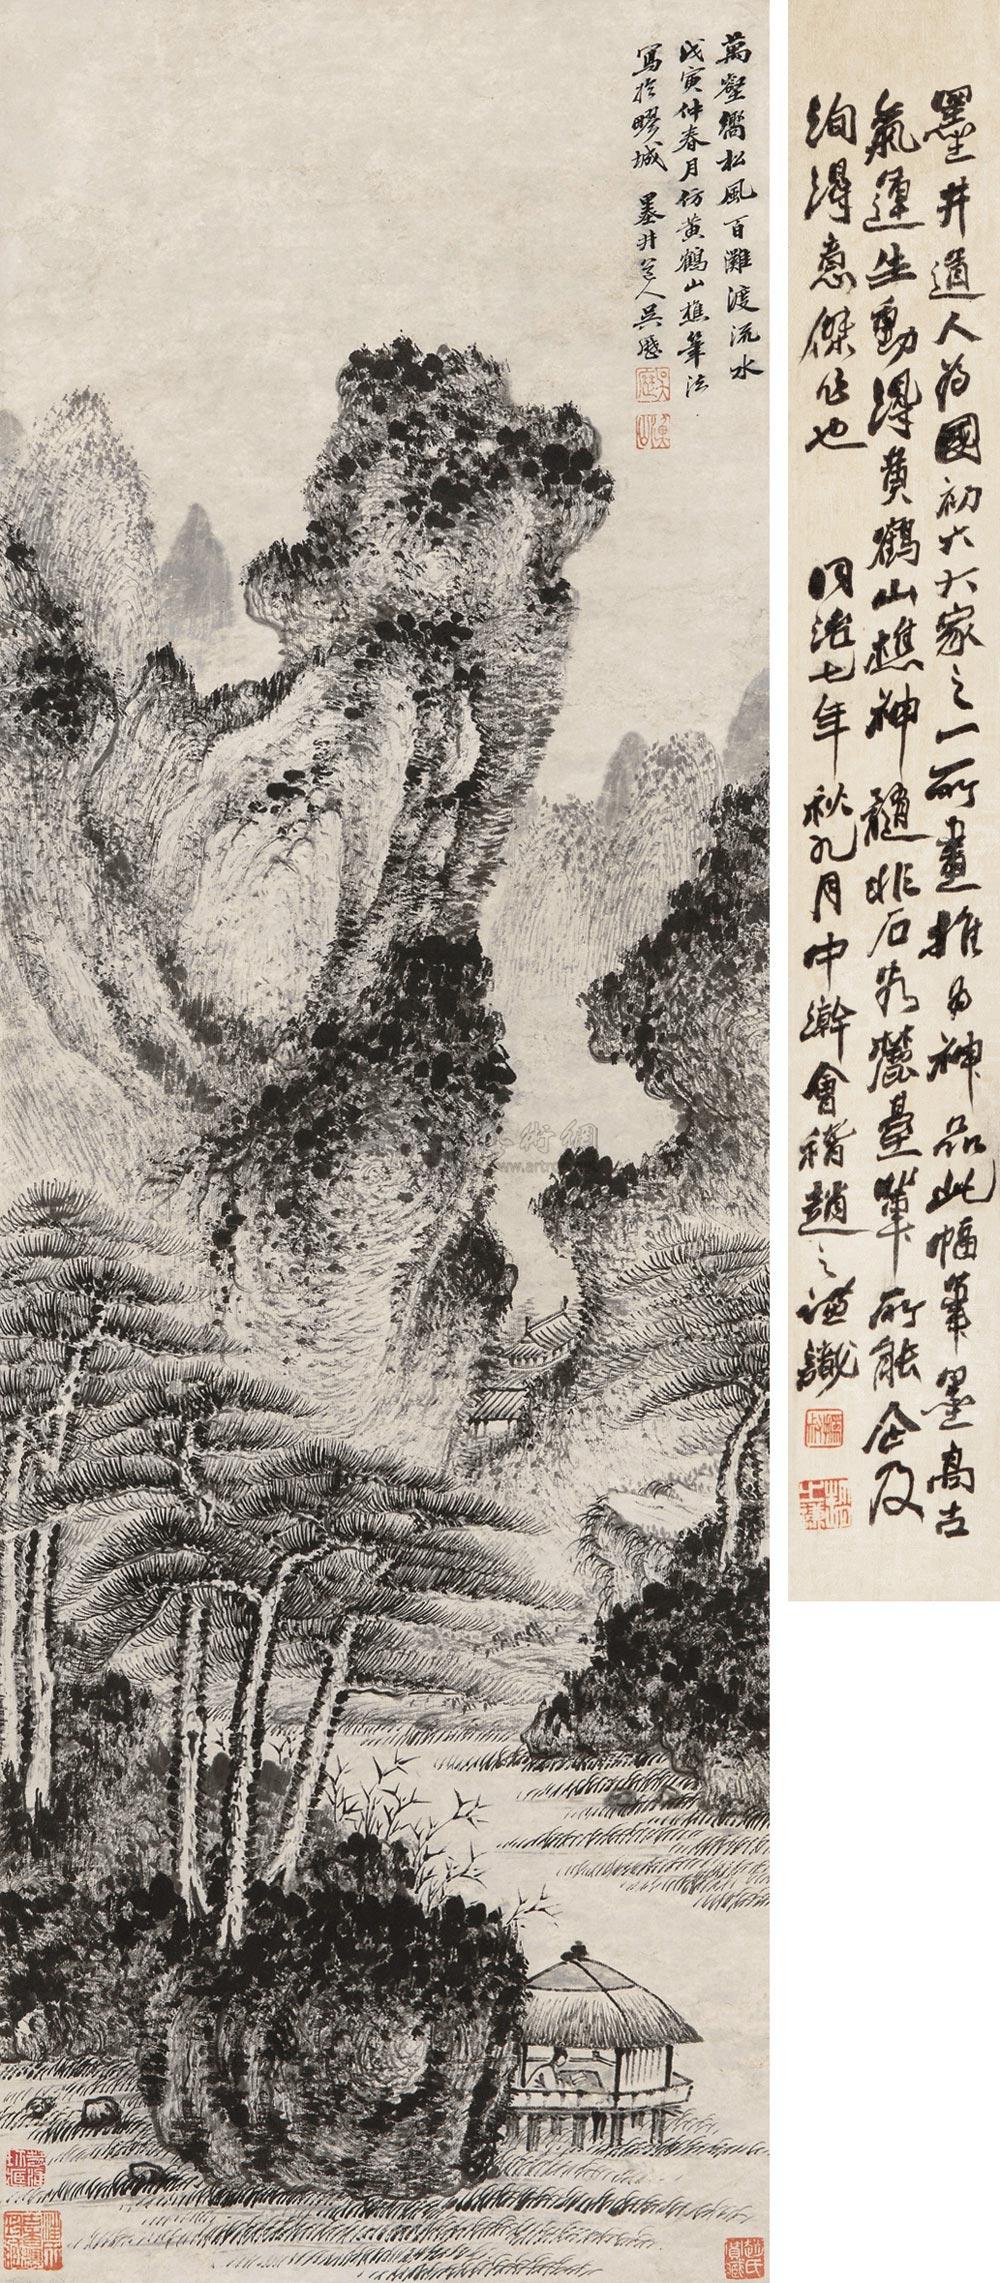 萬壑響松風百灘渡流水
戊寅仲春月仿黃鶴山樵筆法
寫於疁城 墨井道人吳歷
墨井道人為國初六大家之一所畫推為神品此幅筆墨高古
氣運生動得黃鶴山樵神髓非石谷麓臺輩所能企及
洵得意傑作也 同治七年秋九月中澣會稽趙之謙識
吳
漁山
趙氏